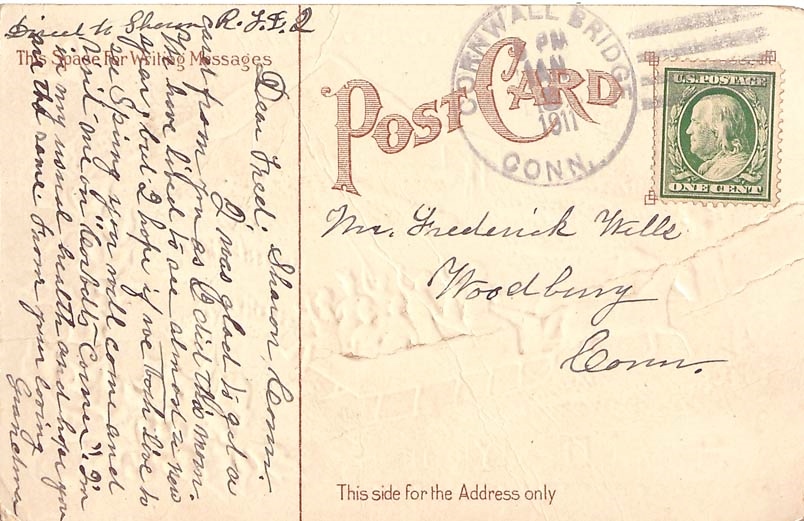 Direct to Sharon, R.F.D. 2
This Space For Writing Messages
Sharon, Conn.
Dear Fred:
I was glad to get a
card from you as I did this morn.
have liked to see almost a new
year, but I hope if we both live to
see Spring you will come and
visit me in "Corbetts Corner" I'm
in my usual health and hope you
are the same from your loving
Grandma
POST CARD
CORNWALL BRIDGE
PM
1911
CONN.
U.S. POSTAGE
ONE CENT
Mr. Frederick Wells
Woodbury
Conn.
This side for the Address only